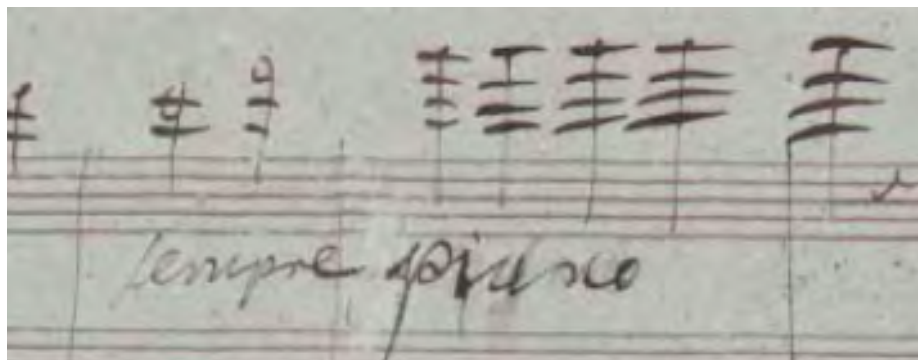 sempre piano